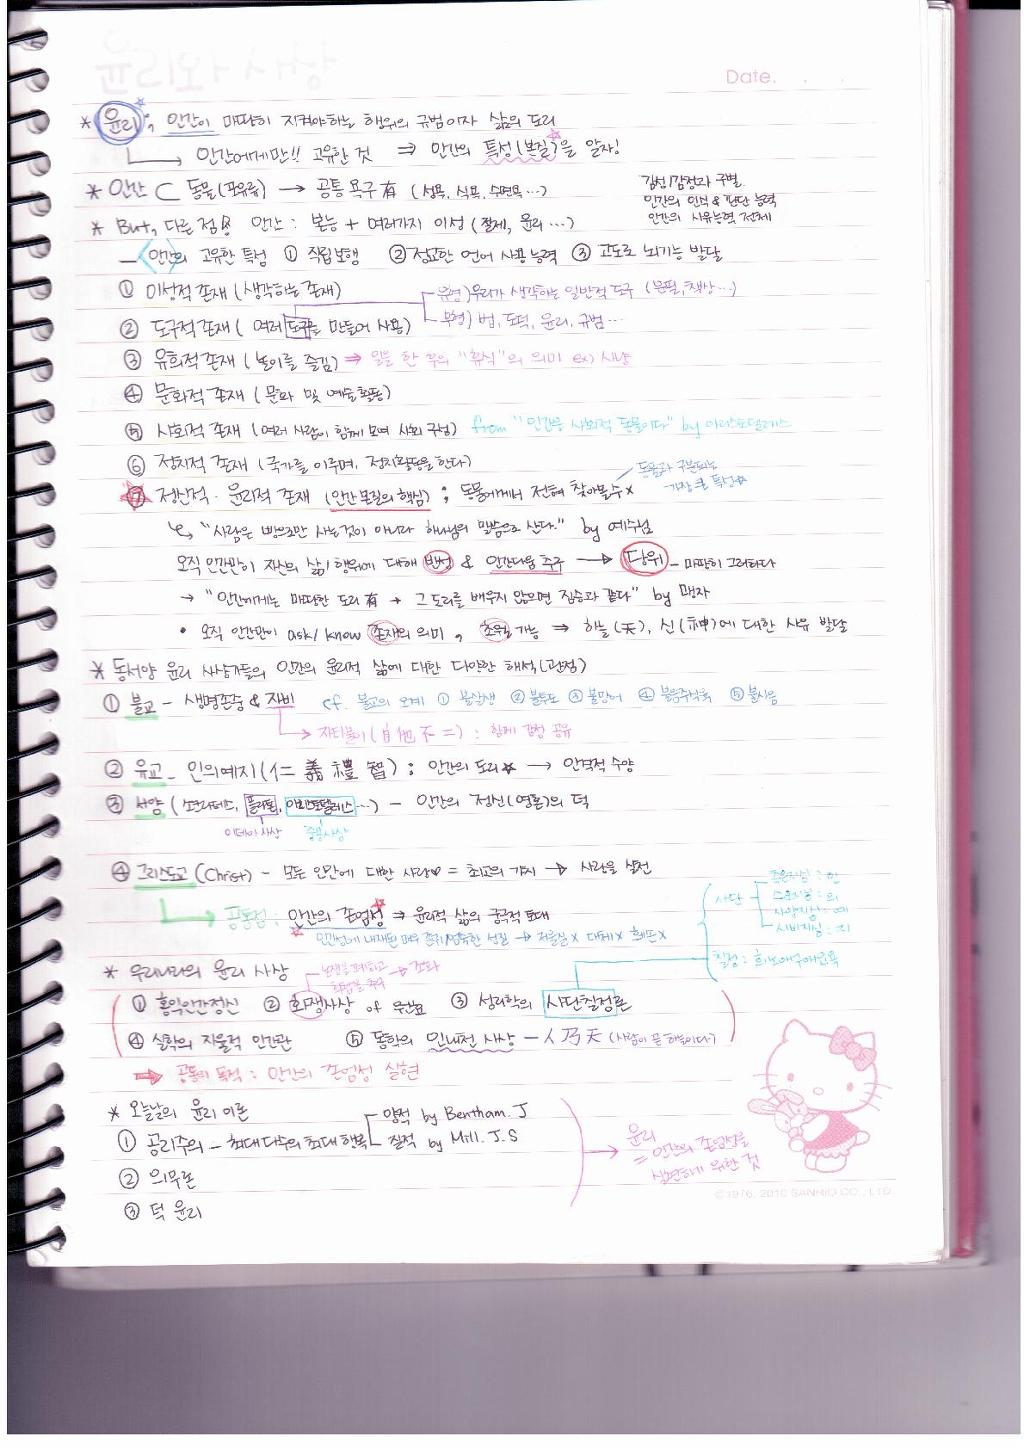 Date. . .
* 윤리 ; 인간이 마땅히 지켜야하는 행위의 규범이자 삶의 도리
→ 인간에게만!! 고유한 것 ⇒ 인간의 특성(본질)을 알자!
* 인간 ⊂ 동물(포유류) → 공통 욕구 有 (성욕, 식욕, 수면욕…)
감성/감정과 구별.
인간의 인식 & 판단 능력
인간의 사유능력 전체
* But, 다른 점! 인간 : 본능 + 여러가지 이성 (절제, 윤리 …)
— 인간의 고유한 특성 ① 직립보행 ② 정교한 언어 사용 능력 ③ 고도로 뇌기능 발달
① 이성적 존재 (생각하는 존재)
유형) 우리가 생각하는 일반적 도구 (분필, 책상…)
② 도구적 존재 ( 여러 도구를 만들어 사용)
무형) 법, 도덕, 윤리, 규범…
③ 유희적 존재 (놀이를 즐김) ⇒ 일을 한 후의 "휴식"의 의미 ex) 사냥
④ 문화적 존재 ( 문화 및 예술활동)
⑤ 사회적 존재 (여러 사람이 함께 모여 사회 구성) from "인간은 사회적 동물이다" by 아리스토텔레스
⑥ 정치적 존재 (국가를 이루며, 정치활동을 한다)
⑦ 정신적 · 윤리적 존재 (인간 본질의 핵심) ; 동물에게서 전혀 찾아볼수 x
동물과 구분되는
가장 큰 특성☆
↳ "사람은 빵으로만 사는것이 아니라 하나님의 말씀으로 산다." by 예수님
오직 인간만이 자신의 삶/행위에 대해 반성 & 인간다움 추구 → 당위 - 마땅히 그러하다
→ "인간에게는 마땅한 도리 有 + 그 도리를 배우지 않으면 짐승과 같다" by 맹자
• 오직 인간만이 ask/know 존재의 의미, 초월 가능 ⇒ 하늘(天), 신(神)에 대한 사유 발달
* 동서양 윤리 사상가들의 인간의 윤리적 삶에 대한 다양한 해석(관점)
① 불교 - 생명존중 & 자비 cf. 불교의 오계 ① 불살생 ② 불투도 ③ 불망어 ④ 불음주식육 ⑤ 불사음
→ 자타불이 (自他不二) : 함께 감정 공유
② 유교 - 인의예지(仁 義 禮 智) ; 인간의 도리★ → 인격적 수양
③ 서양 (소크라테스, 플라톤, 아리스토텔레스…) - 인간의 정신(영혼)의 덕
이데아 사상 중용사상
④ 그리스도교 (Christ) - 모든 인간에 대한 사랑♡ = 최고의 가치 → 사랑을 실천
→ 공통점 : 인간의 존엄성 ⇒ 윤리적 삶의 궁극적 토대
사단
측은지심 : 인
수오지심 : 의
사양지심 : 예
시비지심 : 지
칠정 : 희노애구애오욕
* 우리나라의 윤리 사상
논쟁을 → 조화
① 홍익인간정신 ② 화쟁사상 of 원효 ③ 성리학의 사단칠정론
④ 실학의 자율적 인간관 ⑤ 동학의 인내천 사상 — 人乃天 (사람이 곧 하늘이다)
⇒ 공통의 목적 : 인간의 존엄성 실현
* 오늘날의 윤리 이론
양적 by Bentham. J
① 공리주의 - 최대 다수의 최대 행복
질적 by Mill. J. S
② 의무론
③ 덕 윤리
→ 윤리
= 인간의 존엄성을
실현하기 위한 것
©1976, 2010 SANRIO CO., LTD.